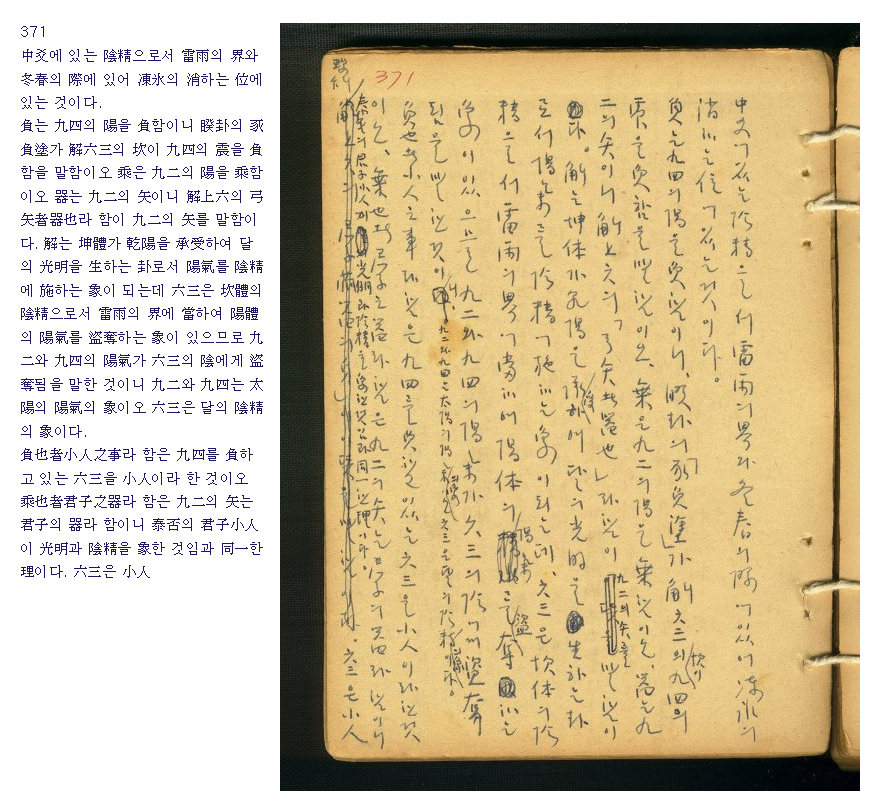 371
中爻에 있는 陰精으로서 雷雨의 界와
冬春의 際에 있어 凍氷의 消하는 位에
있는 것이다.
負는 九四의 陽을 負함이니 睽卦의 豕
負塗가 解六三의 坎이 九四의 震을 負
함을 말함이오 乘은 九二의 陽을 乘함
이오 器는 九二의 矢이니 解上六의 弓
矢者器也라 함이 九二의 矢를 말함이
다. 解는 坤體가 乾陽을 承受하여 달
의 光明을 生하는 卦로서 陽氣를 陰精
에 施하는 象이 되는데 六三은 坎體의
陰精으로서 雷雨의 界에 當하여 陽體
의 陽氣를 盜奪하는 象이 있으므로 九
二와 九四의 陽氣가 六三의 陰에게 盜
奪됨을 말한 것이니 九二와 九四는 太
陽의 陽氣의 象이오 六三은 달의 陰精
의 象이다.
負也者小人之事라 함은 九四를 負하
고 있는 六三을 小人이라 한 것이오
乘也者君子之器라 함은 九二의 矢는
君子의 器라 함이니 泰否의 君子小人
이 光明과 陰精을 象한 것임과 同一한
理이다. 六三은 小人
371
中爻에 있는 陰精으로서 雷雨의 界와 冬春의 際에 있어 凍氷의
消하는 位에 있는 것이다.
負는 九四의 陽을 負함이니, 睽卦의 「豕負塗」가 解六三의 坎이 九四의
震을 負함을 말함이오, 乘은 九二의 陽을 乘함이오, 器는 九
二의 矢이니 解上六의 「弓矢者器也」라 함이 九二의 矢를 말함이
다. 解는 坤体가 乾陽을 承受하여 달의 光明을 生하는 卦
로서 陽氣를 陰精에 施하는 象이 되는데, 六三은 坎体의 陰
精으로서 雷雨의 界에 當하여 陽体의 陽氣를 盜奪하는
象이 있으므로 九二와 九四의 陽氣가 六三의 陰에게 盜奪
됨을 말한 것이니, 九二와 九四는 太陽의 陽氣의 象이오 六三은 달의 陰精의 象이다.
負也者小人之事라 함은 九四를 負하고 있는 六三을 小人이라 한 것
이오, 乘也者君子之器라 함은 九二의 矢는 君子의 器라 함이니
泰否의 君子小人이 光明과 陰精을 象한 것임과 同一한 理이다.
六三은 小人